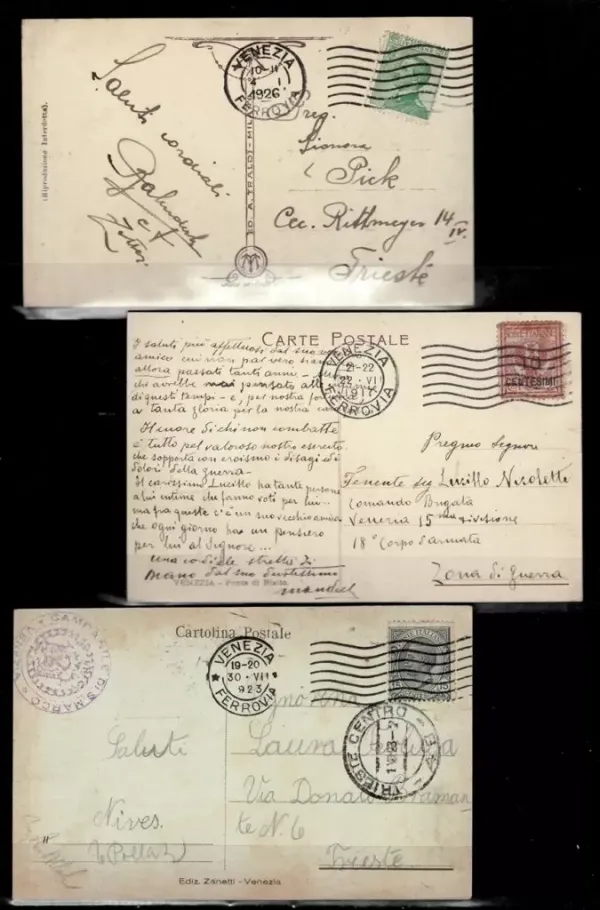 (Riproduzione Interdetta).
Saluti
cordiali
et
VENEZIA
10-11
4 · I
1926
FERROVIA
D. A. TRALDI - MIL
Signora
Pick
Rittmeyer 14
IV.
Trieste
CARTE POSTALE
I saluti più affettuosi dal suo
amico cui non par vero siano
allora passati tanti anni
che avrebbe mai pensato alle
di questi tempi - e, per nostra
a tanta gloria per la nostra
Il cuore di chi non combatte
è tutto pel valoroso nostro esercito
che sopporta con eroismo i disagi ed i
dolori della guerra -
Il carissimo Lucillo ha tante persone
a lui intime che fanno voti per lui -
ma fra queste c'è un suo vecchio amico
che ogni giorno ha un pensiero
per lui al Signore ...
una cordiale stretta di
mano dal suo
VENEZIA - Ponte di Rialto
VENEZIA
21-22
22 · VI
FERROVIA
CENTESIMI
Pregmo Signore
Tenente Sig Lucillo Nicoletti
Comando Brigata
Venezia 15ma divisione
18° Corpo d'armata
Zona di Guerra
Cartolina Postale
CAMPANILE DI S. MARCO
VENEZIA
19-20
30 · VII
923
FERROVIA
TRIESTE CENTRO
Saluti
Nives
Laura
Via Donato Braman
te N. 6
Trieste
Ediz. Zanetti - Venezia